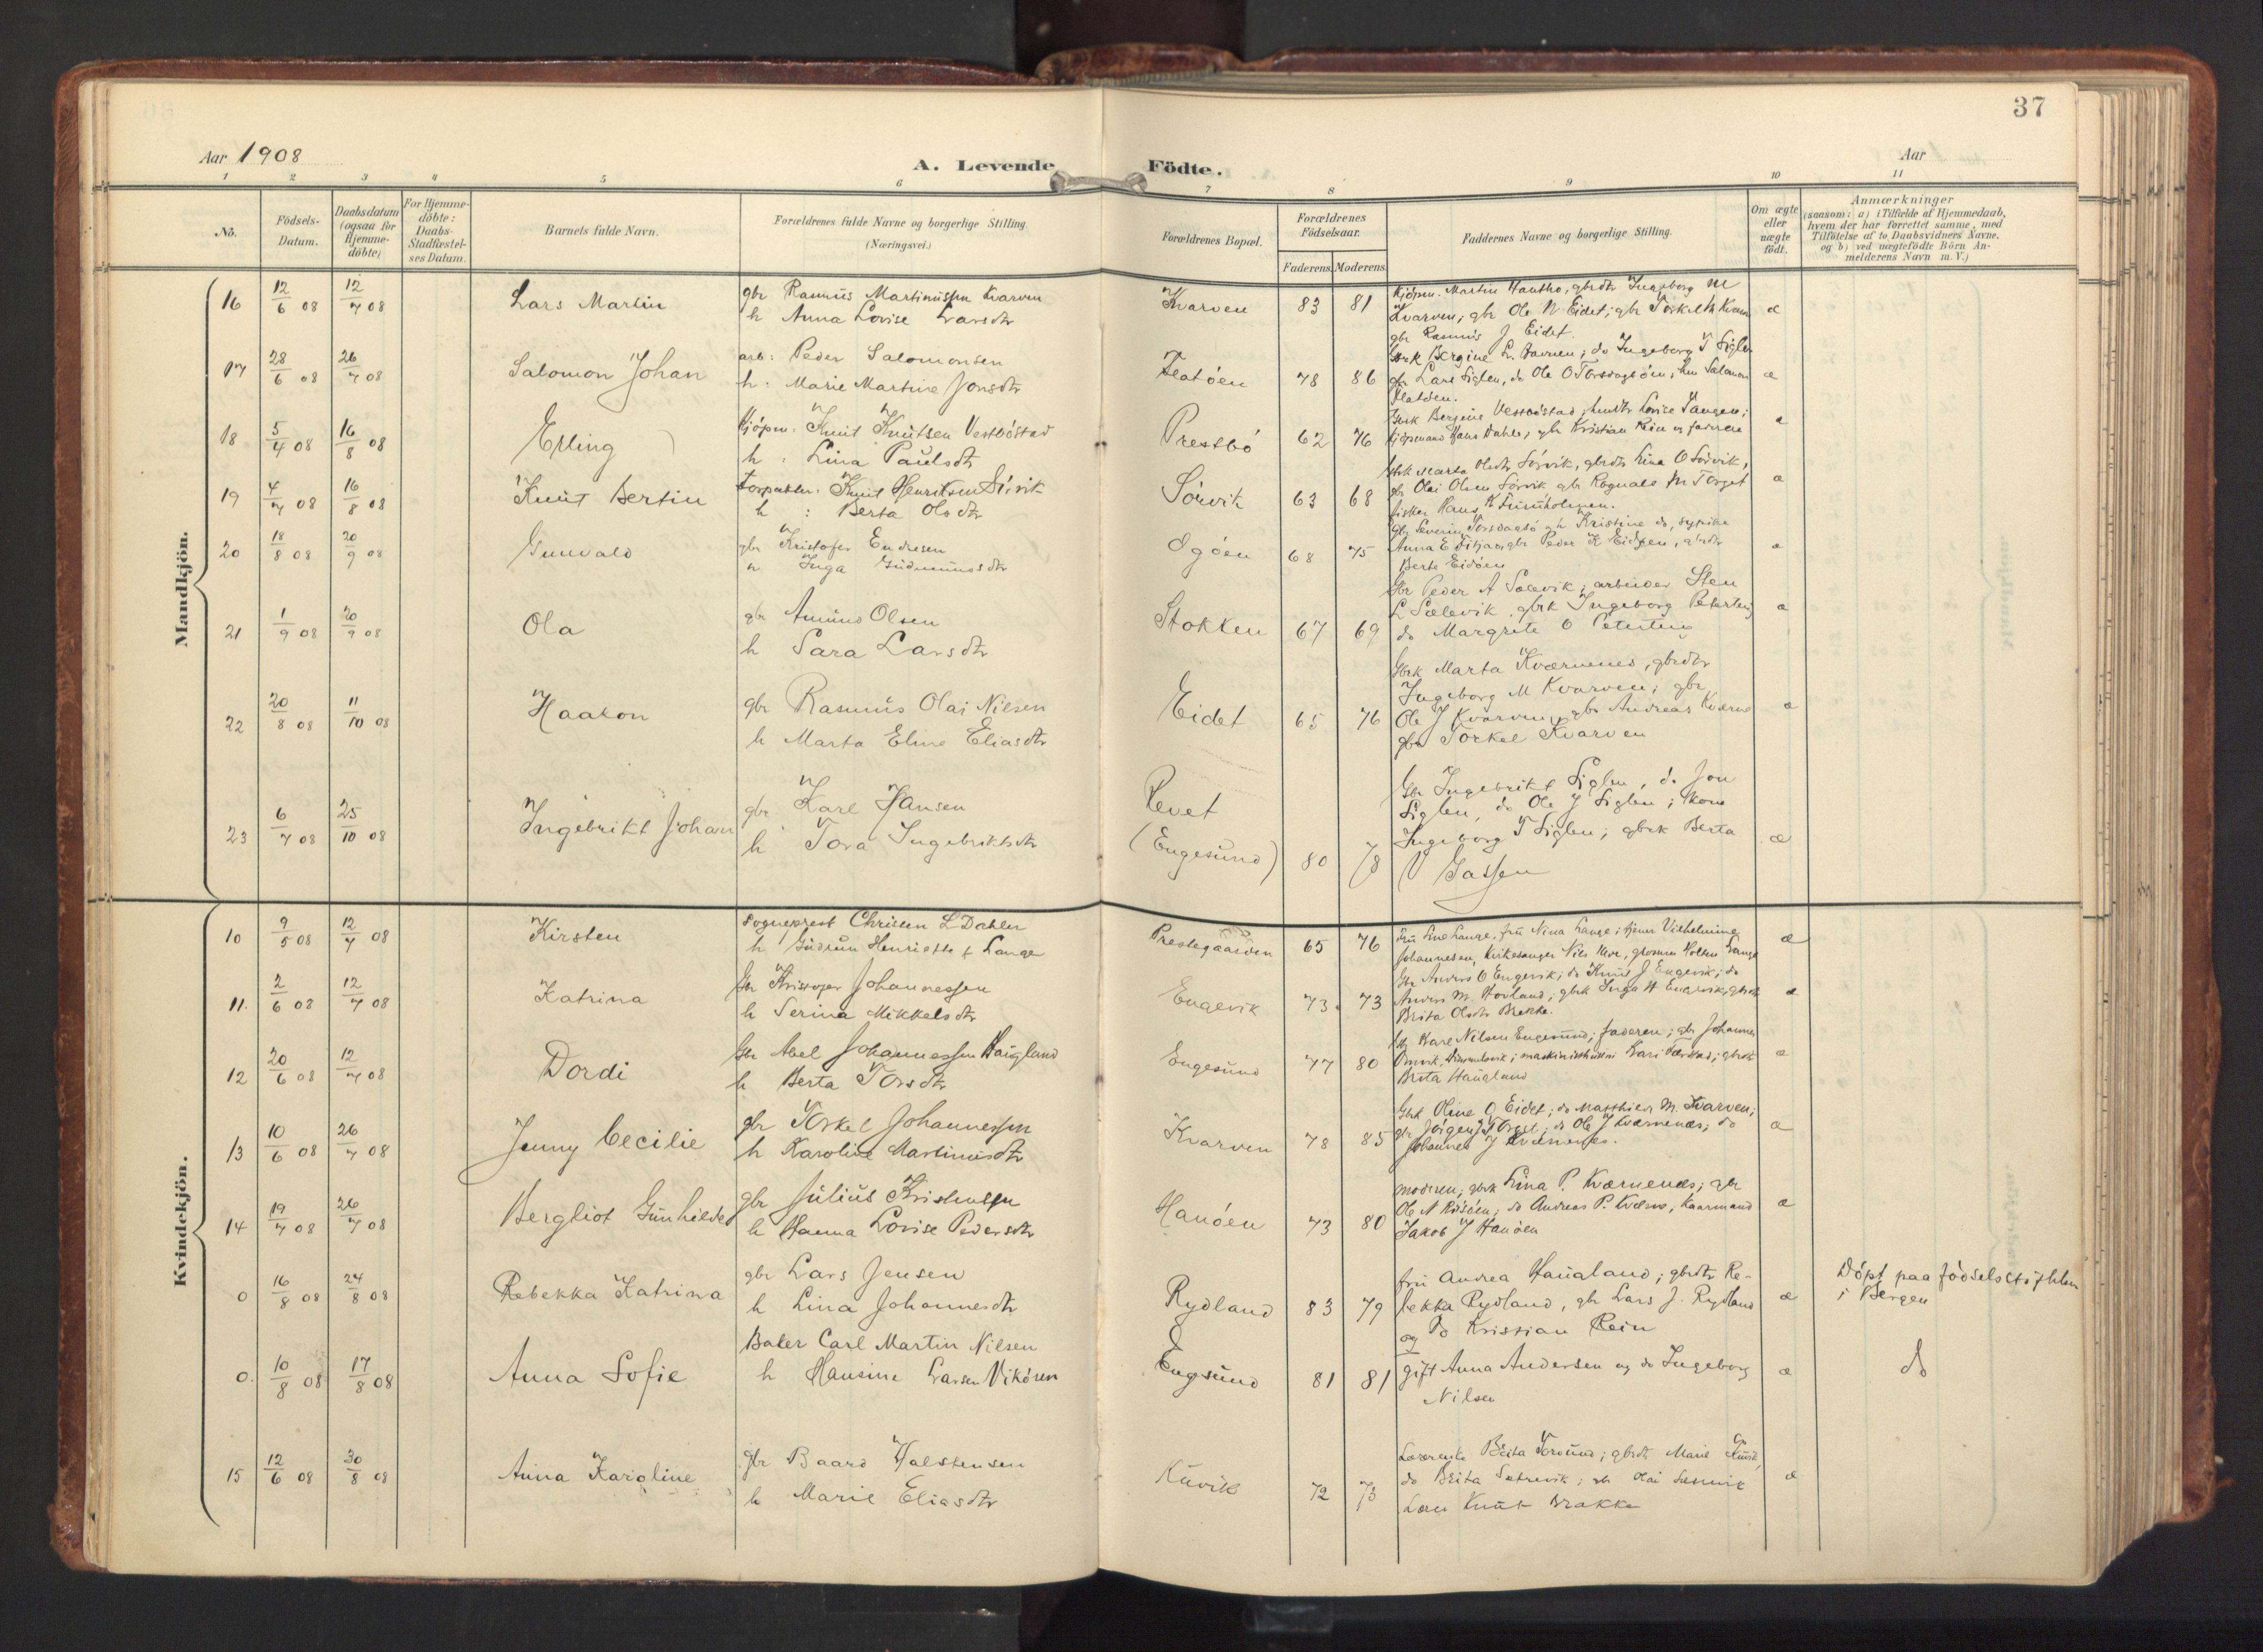 37
Aar 1908
Aar
A. Levende Födte.
1 2 3 4 5 6 7 8 9 10 11
No.
Födsels-Datum.
Daabsdatum (ogsaa for Hjemme-döbte)
For Hjemme-döbte: Daabs-Stadfæstel-ses Datum.
Barnets fulde Navn.
Forældrenes fulde Navne og borgerlige Stilling (Næringsvei.)
Forældrenes Bopæl.
Forældrenes Födselsaar.
Faderens Moderens
Faddernes Navne og borgerlige Stilling.
Om ægte eller uægte födt.
Anmærkninger
(saasom: a) i Tilfælde af Hjemmedaab, hvem der har forrettet samme, med Tilföielse af to Daabsvidners Navne, og b) ved uægtefödte Börn An-melderens Navn m. V.)
Mandkjön.
16 12/6 08 12/7 08 Lars Martin
gbr Rasmus Martinussen Kvarven
h Anna Lovise Larsdtr
Kvarven 83 81
Kjøpm. Martin Hantho, gbrdtr Ingeborg M
Kvarven; gbr Ole N Eidet; gbr Torkel M Kvarv
gbr Rasmus J Eidet.
æ
17 28/6 08 26/7 08 Salomon Johan
arb: Peder Salomonsen
h: Marie Martine Jonsdtr
78 86
Gbrk Bergine L. ; do Ingeborg T Siglen
gbr Lars Siglen, do Ole O Torsdagsøen; Salamon
Flatøen.
æ
18 5/4 08 16/8 08 Erling
Kjøpm. Knut Knutsen Vestbøstad
h: Lina Paulsdtr
Prestbø 62 76
Gbrk Bergine Vestbøstad; Lovise Tangen;
kjøpmand Hans Dahle; gbr Kristian Rein og faderen
æ
19 4/7 08 16/8 08 Knut Bertin
Knut Henriksen Sörvik
h: Berta Olsdtr
Sørvik 63 68
Gbrk Marta Olsdtr Sørvik, gbrdtr Lina O Sørvik,
gbr Olai Olsen Sørvik gbr Rognald M Torget
fisker Hans K Furuholmen.
æ
20 18/8 08 20/9 08 Gunvald
gbr Kristofer Endresen
h Inga Gudmundsdtr
Øgøen 68 75
gbr Severin Torsdagsø gh Kristine do, sypike
Anna E gbr Peder K Eidøen, gbrdtr
Berte Eidøen
æ
21 1/9 08 20/9 08 Ola
gbr Amund Olsen
h Sara Larsdtr
Stokken 67 69
Gbr Peder A Sælevik; arbeider Sten
L Sælevik gbrk Ingeborg Peterteig
do Margrete O Peterteig
æ
22 20/8 08 11/10 08 Haakon
gbr Rasmus Olai Nilsen
h Marta Eline Eliasdtr
Eidet 65 76
Gbrk Marta Kværnenes, gbrdtr
Ingeborg M Kvarven; gbr
Ole J Kvarven, gbr Andreas Kværne
gbr Torkel Kvarven
æ
23 6/7 08 25/10 08 Ingebrikt Johan
gbr Karl Hansen
h Tora Ingebriktsdtr
Revet
(Engesund) 80 78
Gbr Ingebrikt Siglen, do Jon
Siglen, do Ole J Siglen; kone
Ingeborg T Siglen; gbrk Berta
V Jassen
æ
Kvindekjön.
10 9/5 08 12/7 08 Kirsten
Sogneprest Christen L Dahler
h Gudrun Henriette f Lange
Prestegaarden 65 76
Fru Line Lange, fru Nina Lange; Vilhelmine
Johannesen, Kirkesanger Nils , grosserer Holten Lange
æ
11. 2/6 08 12/7 08 Katrina
Gbr Kristofer Johannessen
h Serina Mikkelsdtr
Engevik 73 73
Gbr Anders O Engevik; do Knut J Engevik; do
Anders M. Hovland; gbrk Inga H Engevik,
Brita Olsdtr Brekke.
æ
12 20/6 08 12/7 08 Dordi
Gbr Abel Johannessen Haugland
h Berta Torsdtr
Engesund 77 80
Karl Nilsen Engesund; faderen; gbr Johannes
; Kari ; gbrk
Brita Haugland
æ
13 10/6 08 26/7 08 Jenny Cecilie
gbr Torkel Johannessen
h Karoline Martinusdtr
Kvarven 78 85
Gbrk Oline O Eidet; do Matthilde M. Kvarven;
gbr Jörgen J Torget; do Ole J Kværnenæs; do
Johannes J Kværnenes.
æ
14 19/7 08 26/7 08 Bergliot Gunhilde
gbr Julius Kristensen
h Hanna Lovise Pedersdtr
Hanøen 73 80
moderen; gbrk Lina P. Kværnenæs; gbr
Ole N Risøen; do Andreas P. Kværne, Kaarmand
Jakob J Hanøen
æ
0 16/8 08 24/8 08 Rebekka Katrina
gbr Lars Jensen
h Lina Johannesdtr
Rydland 83 79
fru Andrea Haugland; gbrdtr Re-
bekka Rydland, gbr Lars J. Rydland
og do Kristian Rein
æ
Døpt paa Fødselsstiftelsen
i Bergen
0. 10/8 08 17/8 08 Anna Sofie
Baker Carl Martin Nilsen
h Hansine Larsen Vikøren
Engsund 81 81
gift Anna Andersen og do Ingeborg
Nilsen
æ
do
15 12/6 08 30/8 08 Anna Karoline
gbr Baard Halstensen
h Marie Eliasdtr
Kuvik 72 73
Lærerenke Brita ; gbrdtr Marie Kuvik,
do Brita Sætrevik; gbr Olai
Knut Brakke
æ